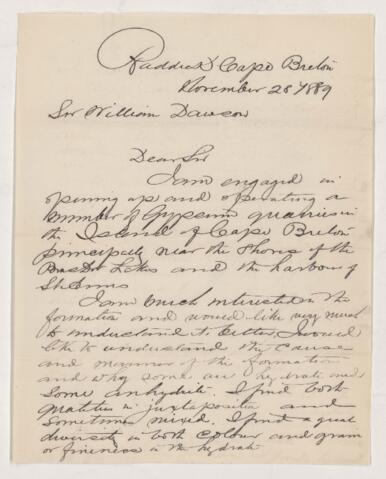 Baddeck Cape Breton
November 26 1889
Sir William Dawson
Dear Sir
I am engaged in
opening up and operating a
number of Gypsum quarries in
the Island of Cape Breton
principally near the Shores of the
Bras Dr Lakes and the harbour of
St Anns
I am much interested in the
formation and would like very much
to understand it better, I would
like to understand the cause
and manner of the formation
and why some are hydrate and
some anhydrite. I find both
qualities in juxtaposition and
sometimes mixed. I find a great
diversity in both colour and grain
or fineness in the hydrate